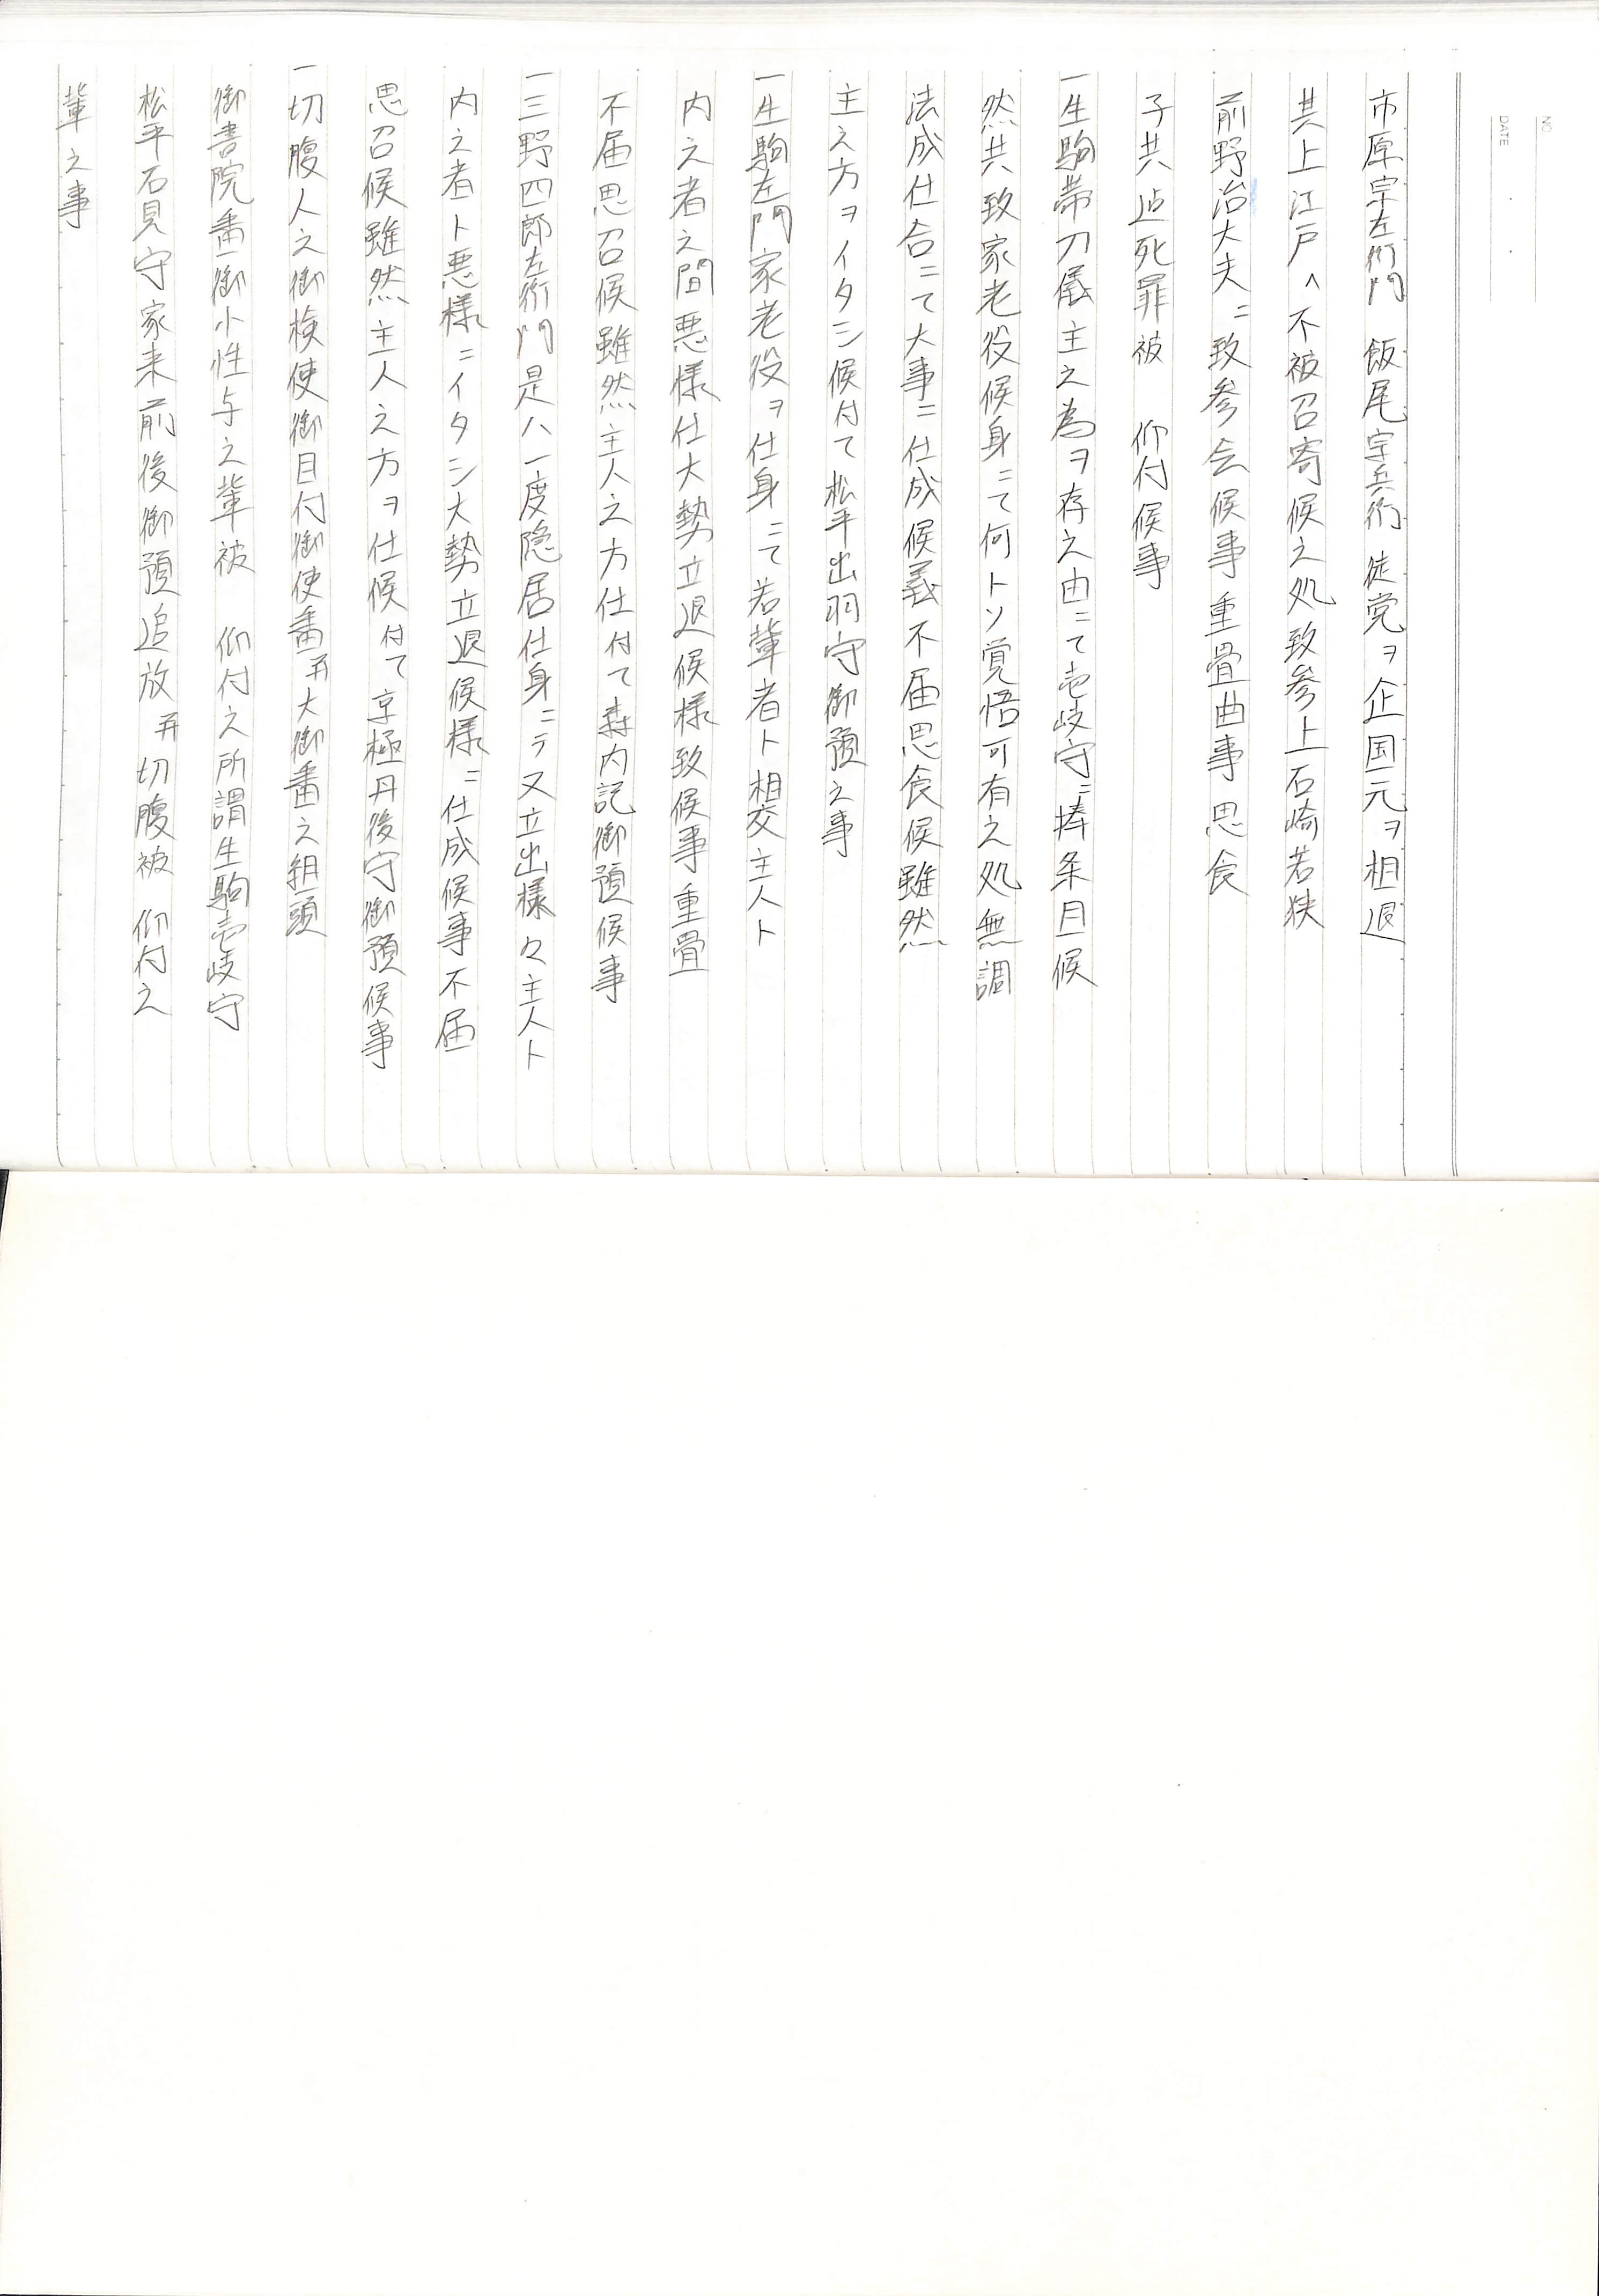 NO
DATE ・ ・
市原宗左衛門 飯尾宗兵衛 徒党ヲ企国元ヲ相退
其上江戸ヘ不被召寄候之処致参上石崎若狭
前野治大夫ニ致参会候事重畳曲事思食
子共迠死罪被 仰付候事
一生駒帯刀儀主之為ヲ存之由ニて壱岐守ニ捧条目候
然共致家老役候身ニて何トソ覚悟可有之処無調
法成仕合ニて大事ニ仕成候義不届思食候雖然
主之方ヲイタシ候付て松平出羽守御預之事
一生駒左門家老役ヲ仕身ニて若輩者ト相交主人ト
内之者之間悪様仕大勢立退候様致候事重畳
不届思召候雖然主人之方仕付て森内記御預候事
一三野四郎左衛門是ハ一度隠居仕身ニテ又立出様々主人ト
内之者ト悪様ニイタシ大勢立退候様ニ仕成候事不届
思召候雖然主人之方ヲ仕候付て京極丹後守御預候事
一切腹人之御検使御目付御使番并大御番之組頭
御書院番御小性与之輩被 仰付之所謂生駒壱岐守
松平石見守家来前後御預追放并切腹被 仰付之
輩之事